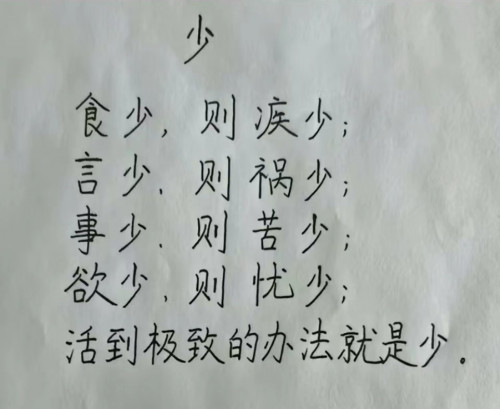 少
食少，则疾少；
言少，则祸少；
事少，则苦少；
欲少，则忧少；
活到极致的办法就是少。